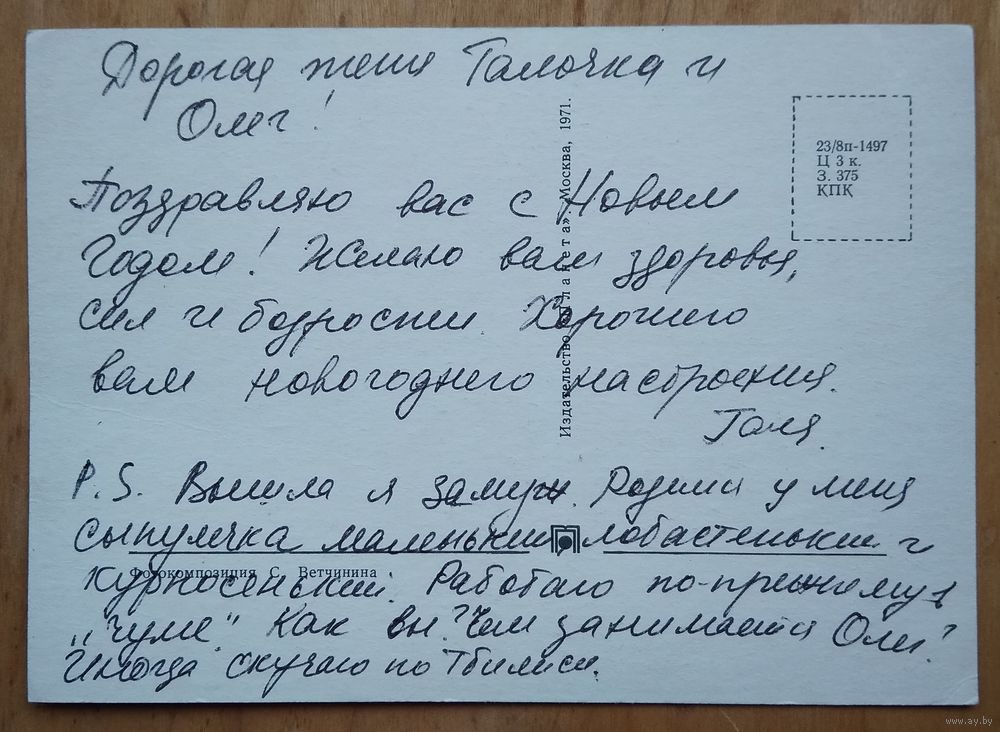 Дорогая Галочка и
Олег!
Поздравляю вас с Новым
Годом! Желаю вам здоровья,
сил и бодрости. Хорошего
вам новогоднего настроения.
Галя.
P.S. Вышла я замуж. Родился у меня
сынулечка маленький лобастенький и
курносенький. Работаю по-прежнему в
„чуме". Как вы? Чем занимается Олег?
Иногда скучаю по Тбилиси.
Издательство «Планета». Москва, 1971.
23/8п-1497
Ц 3 к.
З. 375
КПК
Фотокомпозиция С. Ветчинина
www.ay.by